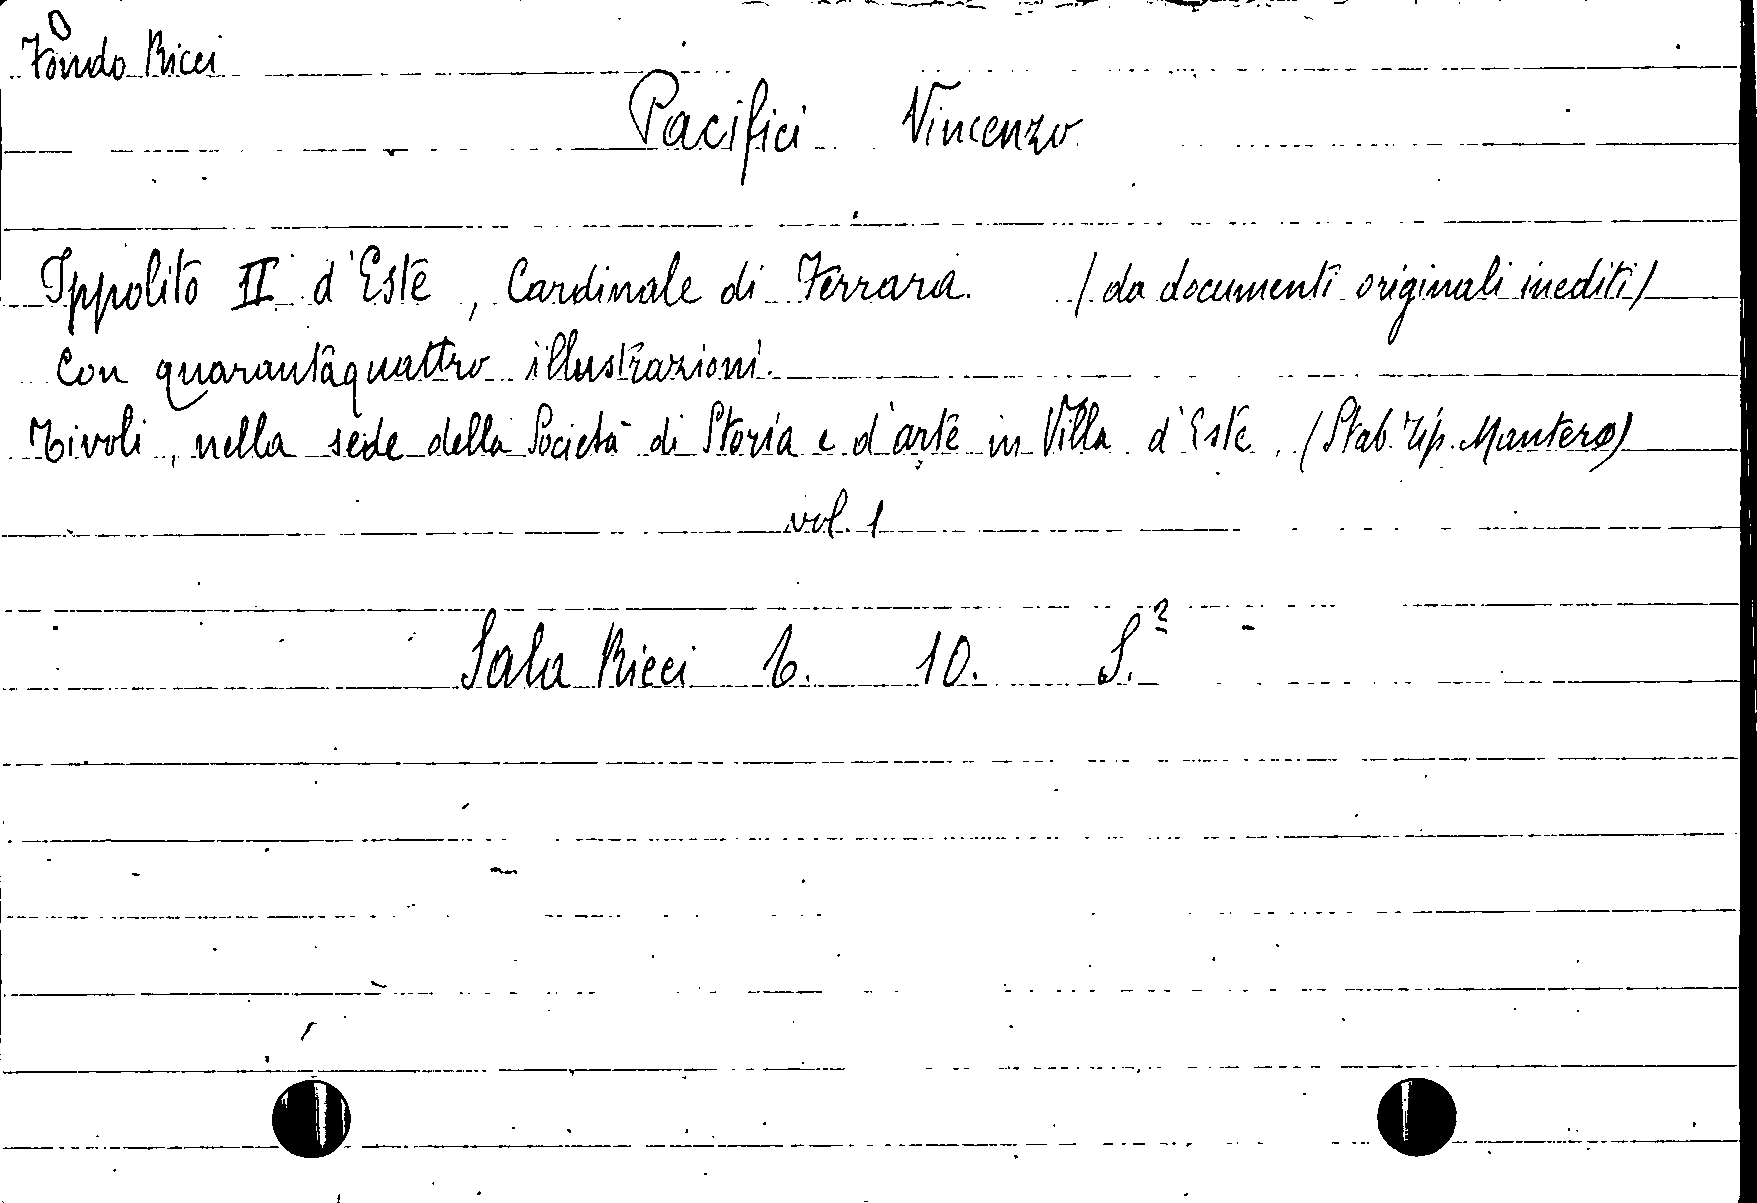 Fondo Ricci
Pacifici Vincenzo
Ippolito II d'Este, Cardinale di Ferrara. (da documenti originali inediti)
Con quarantaquattro illustrazioni.
Tivoli, nella sede della Società di Storia e d'arte in Villa d'Este. (Stab. Tip. Mantero)
vol. 1
Sala Ricci 6. 10. S.²